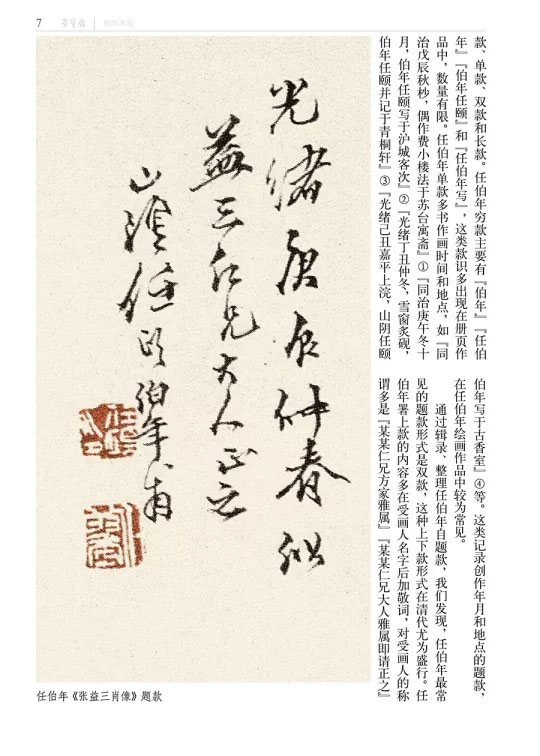 7
荣宝斋
款、单款、双款和长款。任伯年穷款主要有『伯年』『任伯
年』『伯年任颐』和『任伯年写』，这类款识多出现在册页作
品中，数量有限。任伯年单款多书作画时间和地点，如『同
治戊辰秋杪，偶作费小楼法于苏台寓斋』①『同治庚午冬十
月，伯年任颐写于沪城客次』②『光绪丁丑仲冬，雪窗炙砚，
伯年任颐并记于青桐轩』③『光绪己丑嘉平上浣，山阴任颐
伯年写于古香室』④等。这类记录创作年月和地点的题款，
在任伯年绘画作品中较为常见。
通过辑录、整理任伯年自题款，我们发现，任伯年最常
见的题款形式是双款，这种上下款形式在清代尤为盛行。任
伯年署上款的内容多在受画人名字后加敬词，对受画人的称
谓多是『某某仁兄方家雅属』『某某仁兄大人雅属即请正之』
光绪庚辰仲春似
益三仁兄大人正之
山阴任颐伯年甫
任伯年《张益三肖像》题款